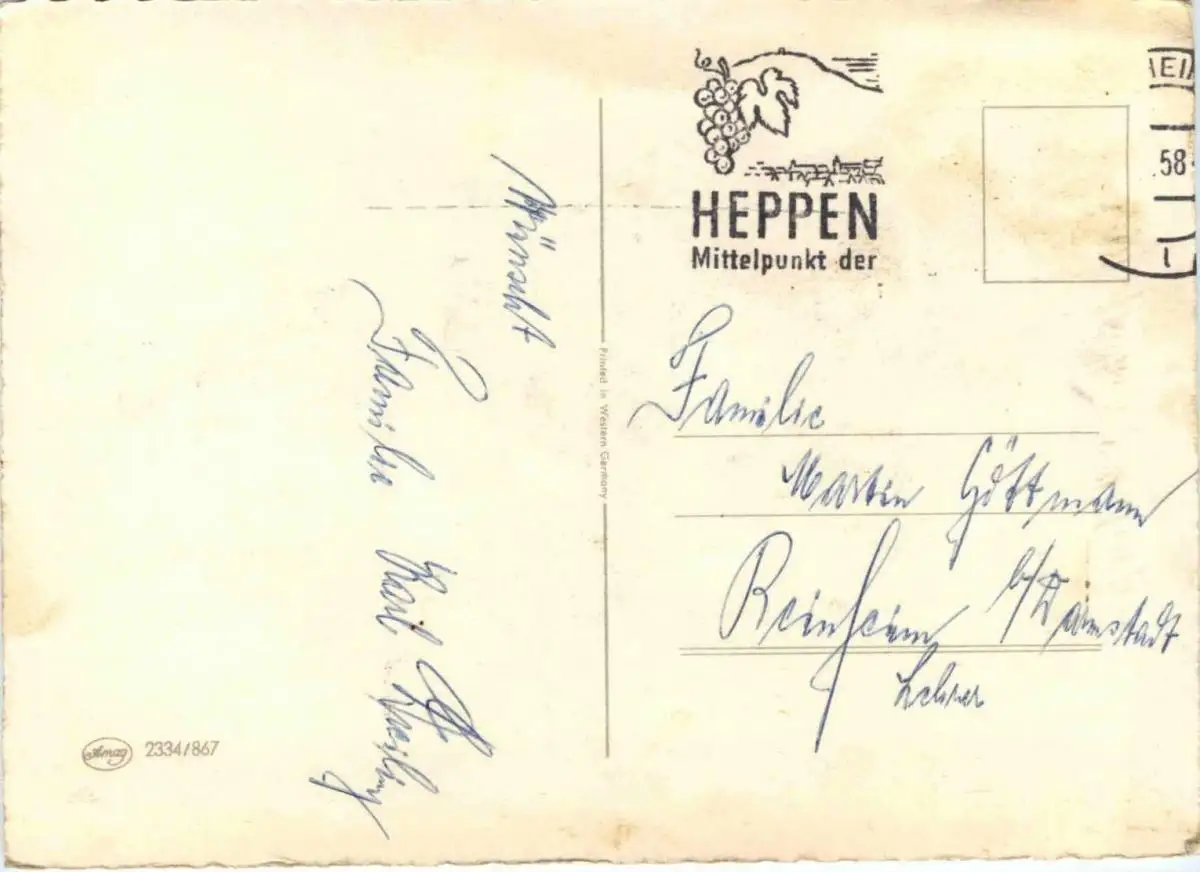 Wünscht
Familie Karl
HEPPEN
Mittelpunkt der
HEI
58
Printed in Western Germany
Familie
Martin Göttmann
Reinheim b/Darmstadt
Lehrer
Amag 2334/867